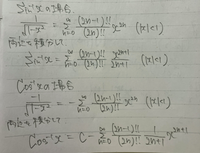 Sin⁻¹xの場合
1/√(1-x²) = Σ_{n=0}^{∞} (2n-1)!!/(2n)!! x^{2n} (|x|<1)
両辺を積分して
Sin⁻¹x = Σ_{n=0}^{∞} (2n-1)!!/(2n)!! x^{2n+1}/(2n+1) (|x|<1)
Cos⁻¹xの場合
-1/√(1-x²) = -Σ_{n=0}^{∞} (2n-1)!!/(2n)!! x^{2n} (|x|<1)
両辺を積分して
Cos⁻¹x = C - Σ_{n=0}^{∞} (2n-1)!!/(2n)!! 1/(2n+1) x^{2n+1}